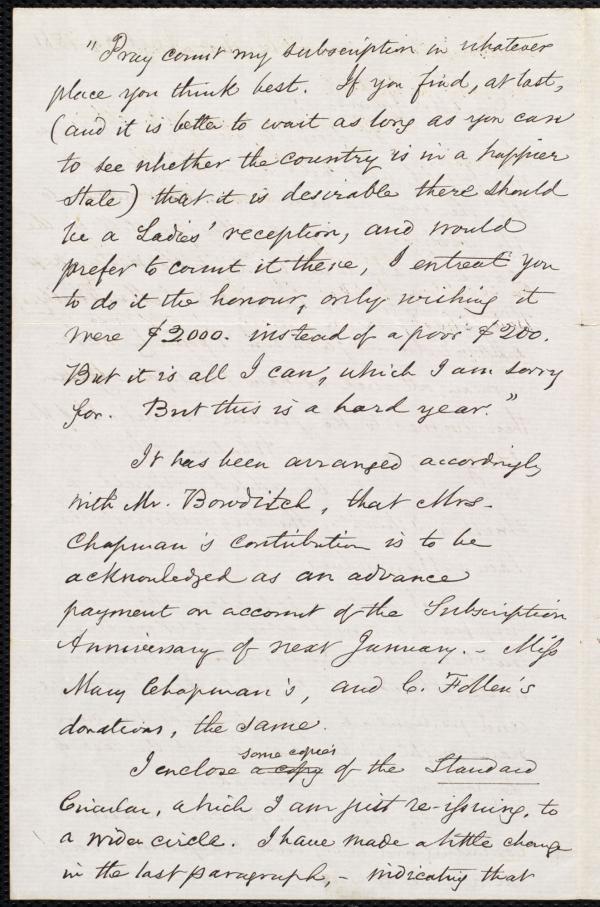 "Pray count my subscription in whatever
place you think best. If you find, at last,
(and it is better to wait as long as you can
to see whether the country is in a happier
state) that it is desirable there should
be a Ladies' reception, and would
prefer to count it there, I entreat you
to do it the honour, only wishing it
were $2000. instead of a poor $200.
But it is all I can, which I am sorry
for. But this is a hard year."
It has been arranged accordingly
with Mr. Bowditch, that Mrs.
Chapman's contribution is to be
acknowledged as an advance
payment on account of the Subscription
Anniversary of next January. - Miss
Mary Chapman's, and C. Follen's
donations, the same.
some copies
I enclose a copy of the Standard
Circular, which I am just re-issuing, to
a wider circle. I have made a little change
in the last paragraph, - indicating that